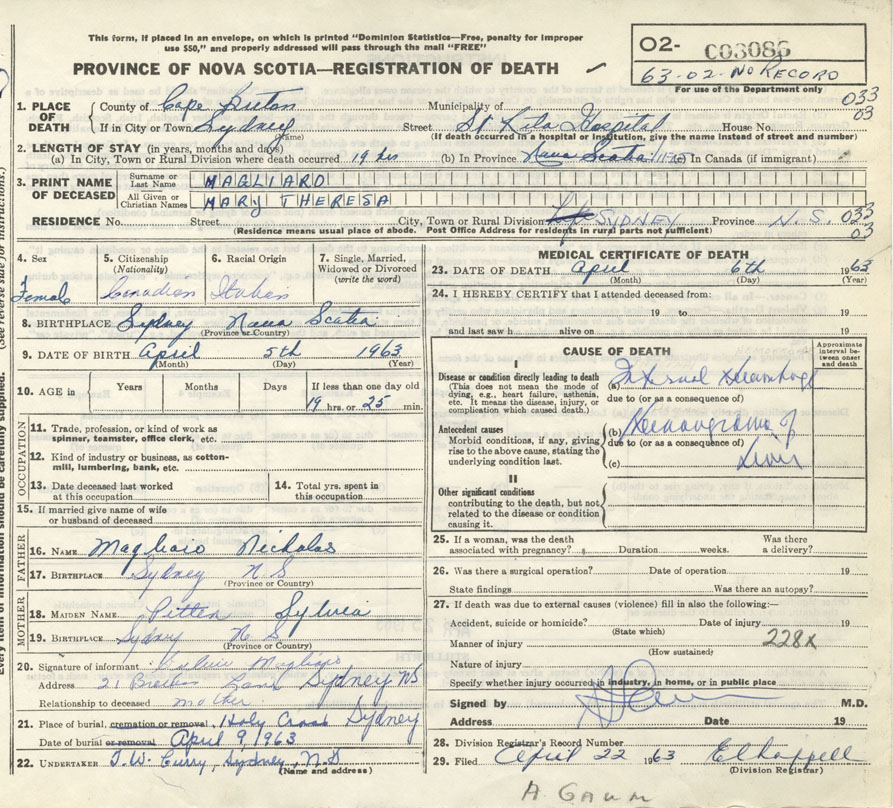 This form, if placed in an envelope, on which is printed "Dominion Statistics—Free, penalty for improper
use $50," and properly addressed will pass through the mail "FREE"
PROVINCE OF NOVA SCOTIA—REGISTRATION OF DEATH
O2- C03086
63-02-No Record
For use of the Department only
033
03
1. PLACE OF DEATH
County of Cape Breton Municipality of
If in City or Town Sydney Street St Rita Hospital House No.
(Name) (If death occurred in a hospital or institution, give the name instead of street and number)
2. LENGTH OF STAY (in years, months and days)
(a) In City, Town or Rural Division where death occurred 19 hrs (b) In Province Nova Scotia (c) In Canada (if immigrant)
3. PRINT NAME OF DECEASED
Surname or Last Name MAGLIARO
All Given or Christian Names MARY THERESA
RESIDENCE No. Street City, Town or Rural Division SYDNEY Province N.S. 033
03
(Residence means usual place of abode. Post Office Address for residents in rural parts not sufficient)
4. Sex Female
5. Citizenship (Nationality) Canadian
6. Racial Origin Italian
7. Single, Married, Widowed or Divorced (write the word)
8. BIRTHPLACE Sydney Nova Scotia
(Province or Country)
9. DATE OF BIRTH April 5th 1963
(Month) (Day) (Year)
10. AGE in Years Months Days If less than one day old
19 hrs. or 25 min.
OCCUPATION
11. Trade, profession, or kind of work as spinner, teamster, office clerk, etc.
12. Kind of industry or business, as cotton-mill, lumbering, bank, etc.
13. Date deceased last worked at this occupation
14. Total yrs. spent in this occupation
15. If married give name of wife or husband of deceased
FATHER
16. NAME Magliaro Nicholas
17. BIRTHPLACE Sydney N S
(Province or Country)
MOTHER
18. MAIDEN NAME Sylvia
19. BIRTHPLACE Sydney N S
(Province or Country)
20. Signature of informant Magliaro
Address 21 Lane Sydney NS
Relationship to deceased mother
21. Place of burial, cremation or removal, Holy Cross Sydney
Date of burial or removal April 9, 1963
22. UNDERTAKER T.W. Curry, Sydney, N.S
(Name and address)
MEDICAL CERTIFICATE OF DEATH
23. DATE OF DEATH April 6th 1963
(Month) (Day) (Year)
24. I HEREBY CERTIFY that I attended deceased from:
19 to 19
and last saw h alive on 19
CAUSE OF DEATH
Approximate interval between onset and death
I
Disease or condition directly leading to death
(This does not mean the mode of dying, e.g., heart failure, asthenia, etc. It means the disease, injury, or complication which caused death.)
(a) Internal Hemorrhage
due to (or as a consequence of)
Antecedent causes
Morbid conditions, if any, giving rise to the above cause, stating the underlying condition last.
(b) Hemangioma of
due to (or as a consequence of)
(c) Liver
II
Other significant conditions
contributing to the death, but not related to the disease or condition causing it.
25. If a woman, was the death associated with pregnancy? Duration weeks. Was there a delivery?
26. Was there a surgical operation? Date of operation 19
State findings Was there an autopsy?
27. If death was due to external causes (violence) fill in also the following:—
Accident, suicide or homicide? Date of injury 19
(State which)
Manner of injury 228x
(How sustained)
Nature of injury
Specify whether injury occurred in industry, in home, or in public place
Signed by M.D.
Address Date 19
28. Division Registrar's Record Number
29. Filed April 22 1963 El Chappell
(Division Registrar)
A. Gaum
(See reverse side for instructions.)
Every item of information should be carefully supplied.